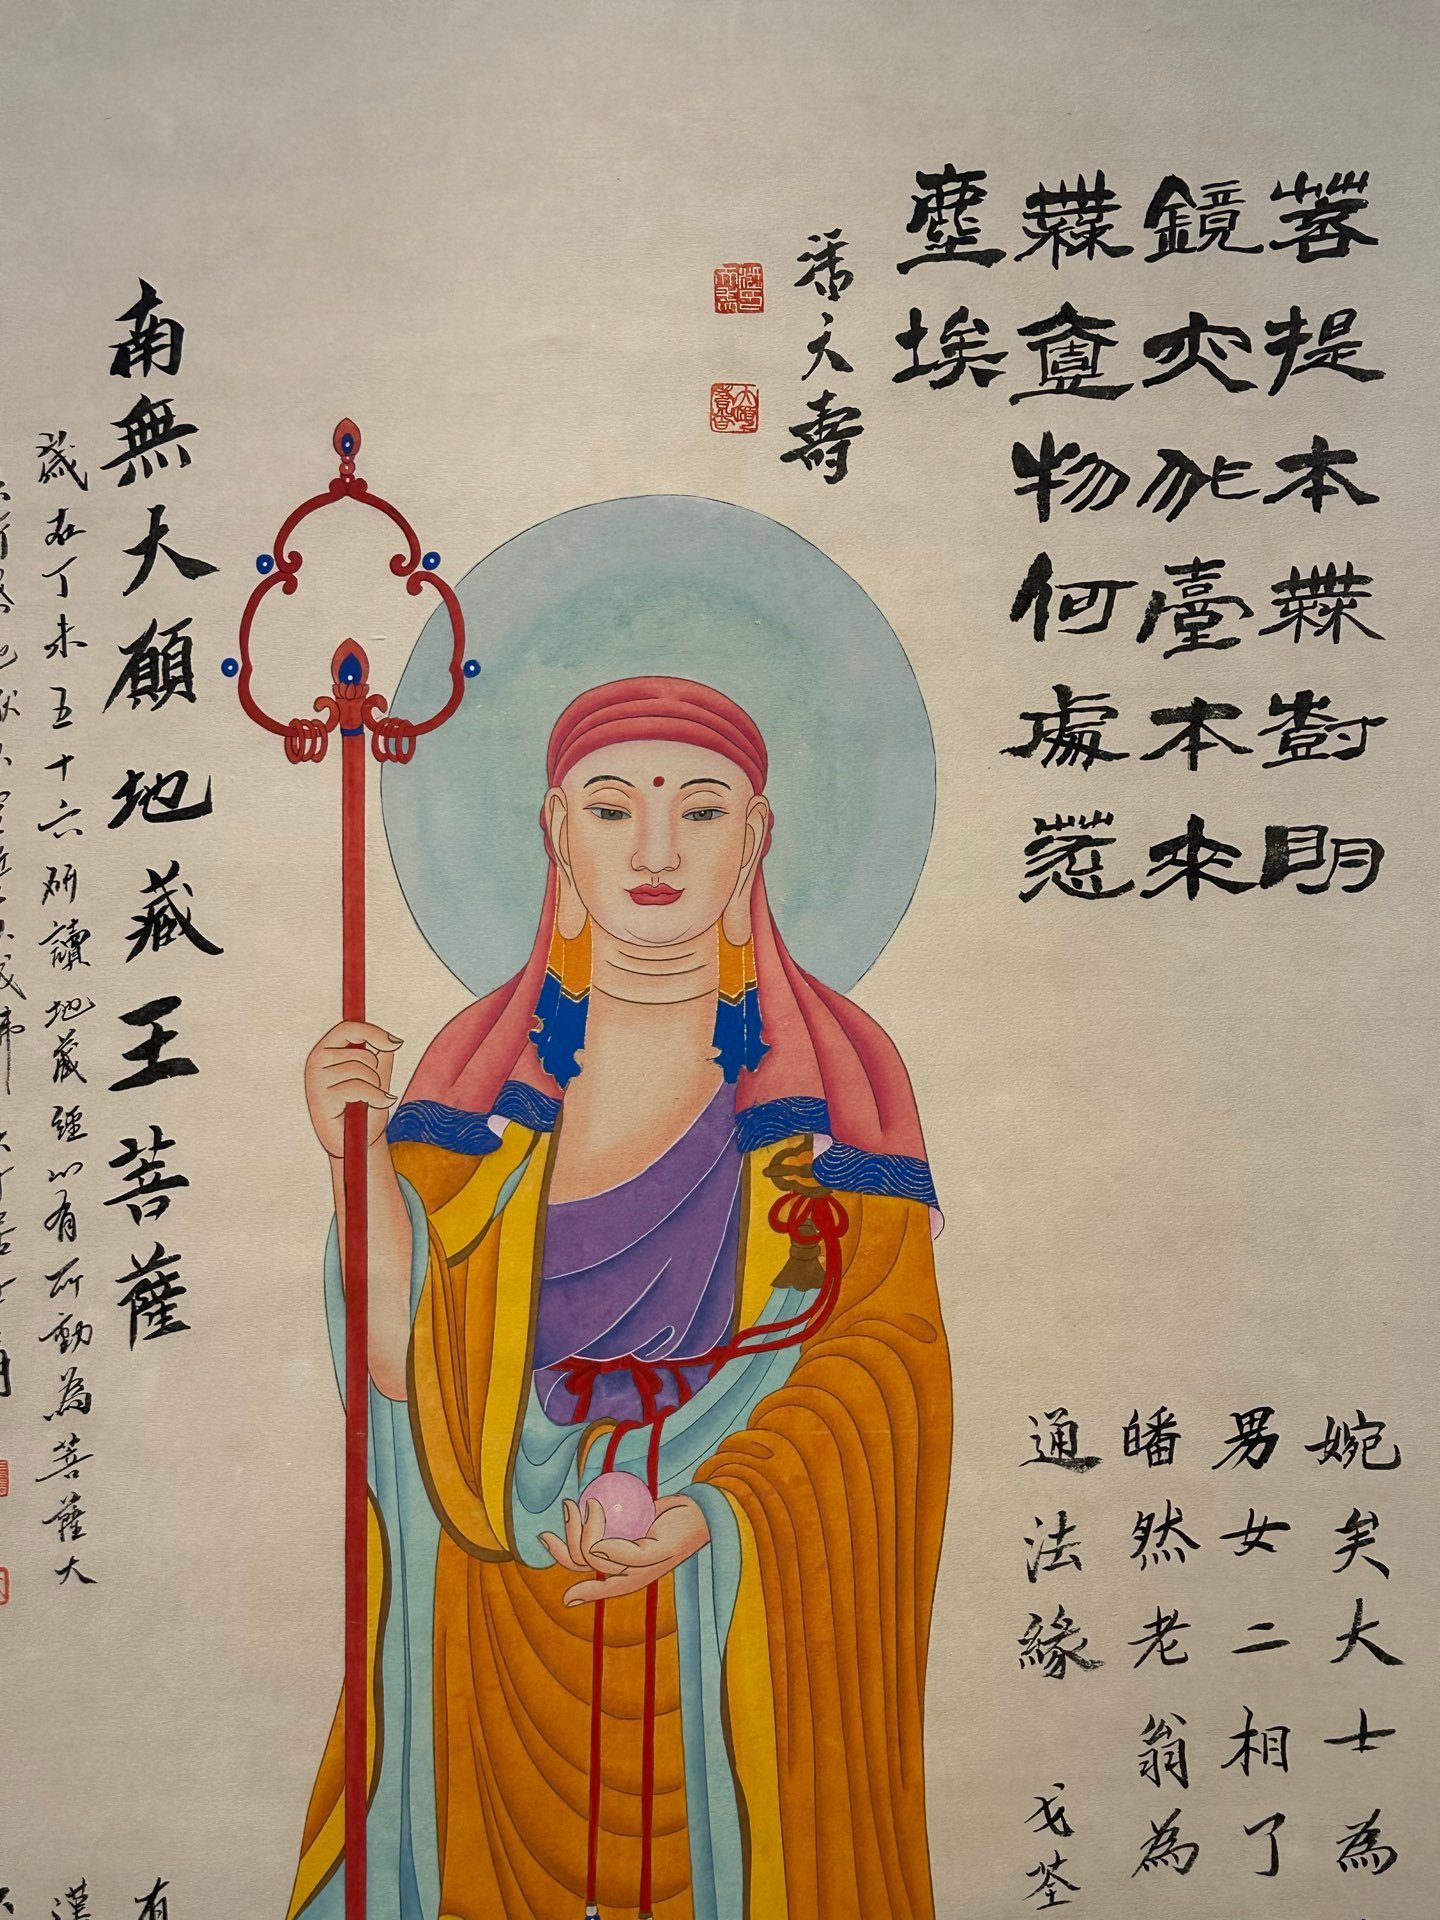 菩提本無樹明
鏡亦非臺本來
無壹物何處惹
塵埃
潘天壽
婉矣大士為
男女二相了
皤然老翁為
通法緣
戈荃
南無大願地藏王菩薩
歲在丁未五十六研讀地藏經以有所動為菩薩大
有
漢